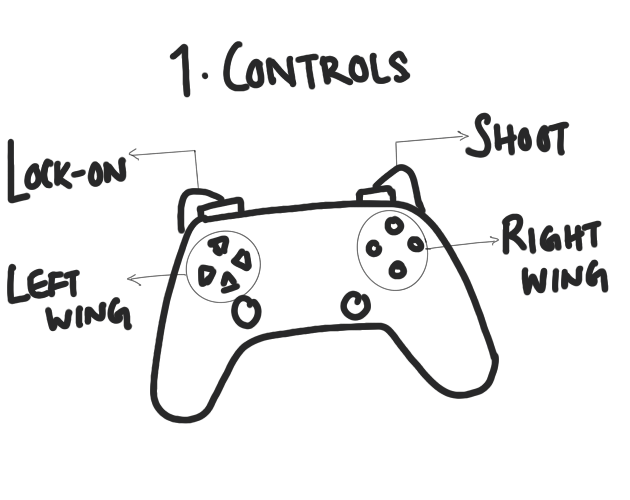 1. CONTROLS
LOCK-ON
SHOOT
LEFT
WING
RIGHT
WING